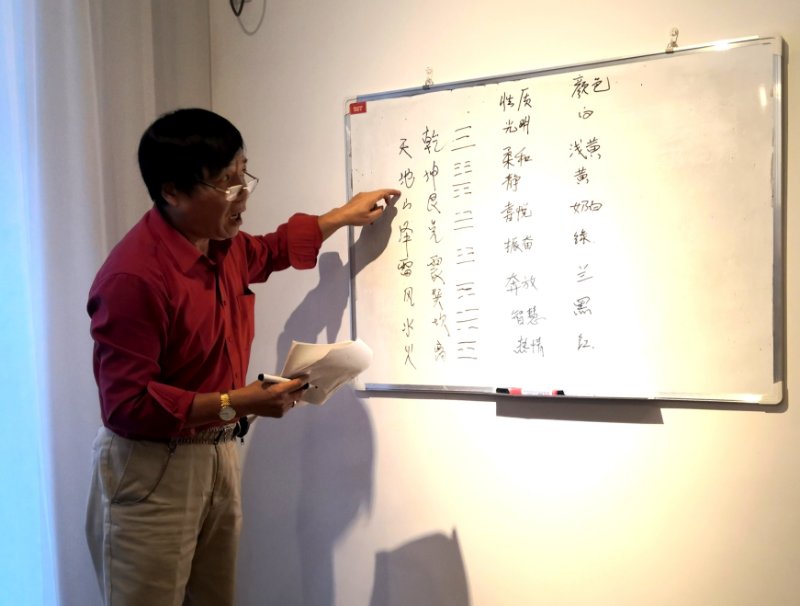 性质 颜色
天 乾 ☰ 光明 白
地 坤 ☷ 柔和 浅黄
山 艮 ☶ 静 黄
泽 兑 ☱ 喜悦 奶白
雷 震 ☳ 振奋 绿
风 巽 ☴ 奔放 兰
水 坎 ☵ 智慧 黑
火 离 ☲ 热情 红